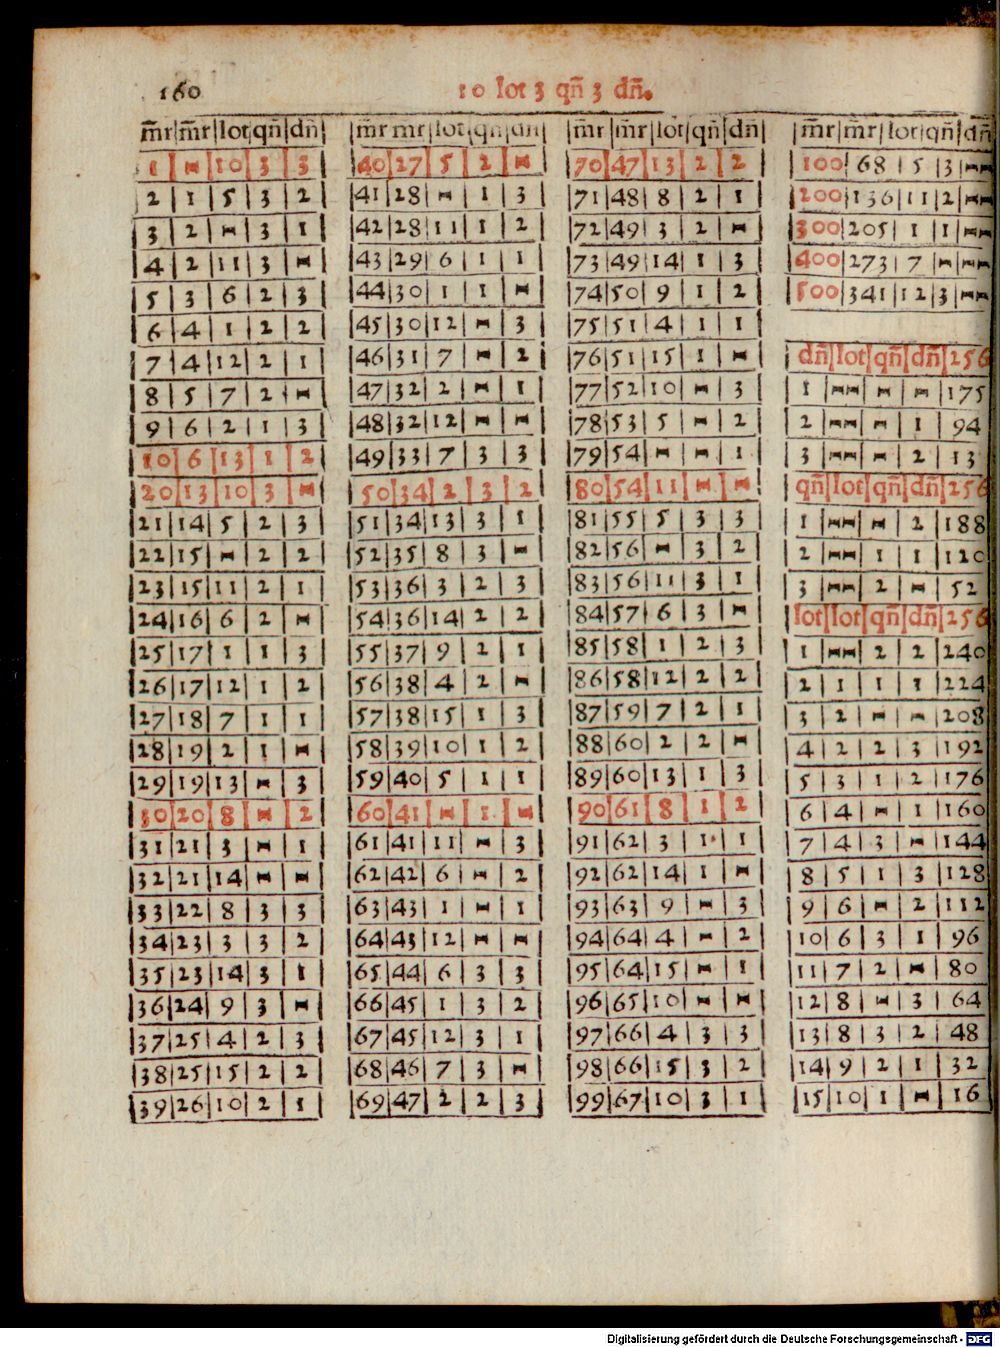 160
10 lot 3 qñ 3 dñ.
m̃r|m̃r|lot|qñ|dñ
1|⑊|10|3|3
2|1|5|3|2
3|2|⑊|3|1
4|2|11|3|⑊
5|3|6|2|3
6|4|1|2|2
7|4|12|2|1
8|5|7|2|⑊
9|6|2|1|3
10|6|13|1|2
20|13|10|3|⑊
21|14|5|2|3
22|15|⑊|2|2
23|15|11|2|1
24|16|6|2|⑊
25|17|1|1|3
26|17|12|1|2
27|18|7|1|1
28|19|2|1|⑊
29|19|13|⑊|3
30|20|8|⑊|2
31|21|3|⑊|1
32|21|14|⑊|⑊
33|22|8|3|3
34|23|3|3|2
35|23|14|3|1
36|24|9|3|⑊
37|25|4|2|3
38|25|15|2|2
39|26|10|2|1
m̃r|mr|lot|qñ|dñ
40|27|5|2|⑊
41|28|⑊|1|3
42|28|11|1|2
43|29|6|1|1
44|30|1|1|⑊
45|30|12|⑊|3
46|31|7|⑊|2
47|32|2|⑊|1
48|32|12|⑊|⑊
49|33|7|3|3
50|34|2|3|2
51|34|13|3|1
52|35|8|3|⑊
53|36|3|2|3
54|36|14|2|2
55|37|9|2|1
56|38|4|2|⑊
57|38|15|1|3
58|39|10|1|2
59|40|5|1|1
60|41|⑊|1|⑊
61|41|11|⑊|3
62|42|6|⑊|2
63|43|1|⑊|1
64|43|12|⑊|⑊
65|44|6|3|3
66|45|1|3|2
67|45|12|3|1
68|46|7|3|⑊
69|47|2|2|3
m̃r|m̃r|lot|qñ|dñ
70|47|13|2|2
71|48|8|2|1
72|49|3|2|⑊
73|49|14|1|3
74|50|9|1|2
75|51|4|1|1
76|51|15|1|⑊
77|52|10|⑊|3
78|53|5|⑊|2
79|54|⑊|⑊|1
80|54|11|⑊|⑊
81|55|5|3|3
82|56|⑊|3|2
83|56|11|3|1
84|57|6|3|⑊
85|58|1|2|3
86|58|12|2|2
87|59|7|2|1
88|60|2|2|⑊
89|60|13|1|3
90|61|8|1|2
91|62|3|1|1
92|62|14|1|⑊
93|63|9|⑊|3
94|64|4|⑊|2
95|64|15|⑊|1
96|65|10|⑊|⑊
97|66|4|3|3
98|66|15|3|2
99|67|10|3|1
m̃r|m̃r|lot|qñ|dñ
100|68|5|3|⑊
200|136|11|2|⑊
300|205|1|1|⑊
400|273|7|⑊|⑊
500|341|12|3|⑊
dñ|lot|qñ|dñ|256
1|⑊|⑊|⑊|175
2|⑊|⑊|1|94
3|⑊|⑊|2|13
qñ|lot|qñ|dñ|256
1|⑊|⑊|2|188
2|⑊|1|1|120
3|⑊|2|⑊|52
lot|lot|qñ|dñ|256
1|⑊|2|2|240
2|1|1|1|224
3|2|⑊|⑊|208
4|2|2|3|192
5|3|1|2|176
6|4|⑊|1|160
7|4|3|⑊|144
8|5|1|3|128
9|6|⑊|2|112
10|6|3|1|96
11|7|2|⑊|80
12|8|⑊|3|64
13|8|3|2|48
14|9|2|1|32
15|10|1|⑊|16
Digitalisierung gefördert durch die Deutsche Forschungsgemeinschaft - DFG